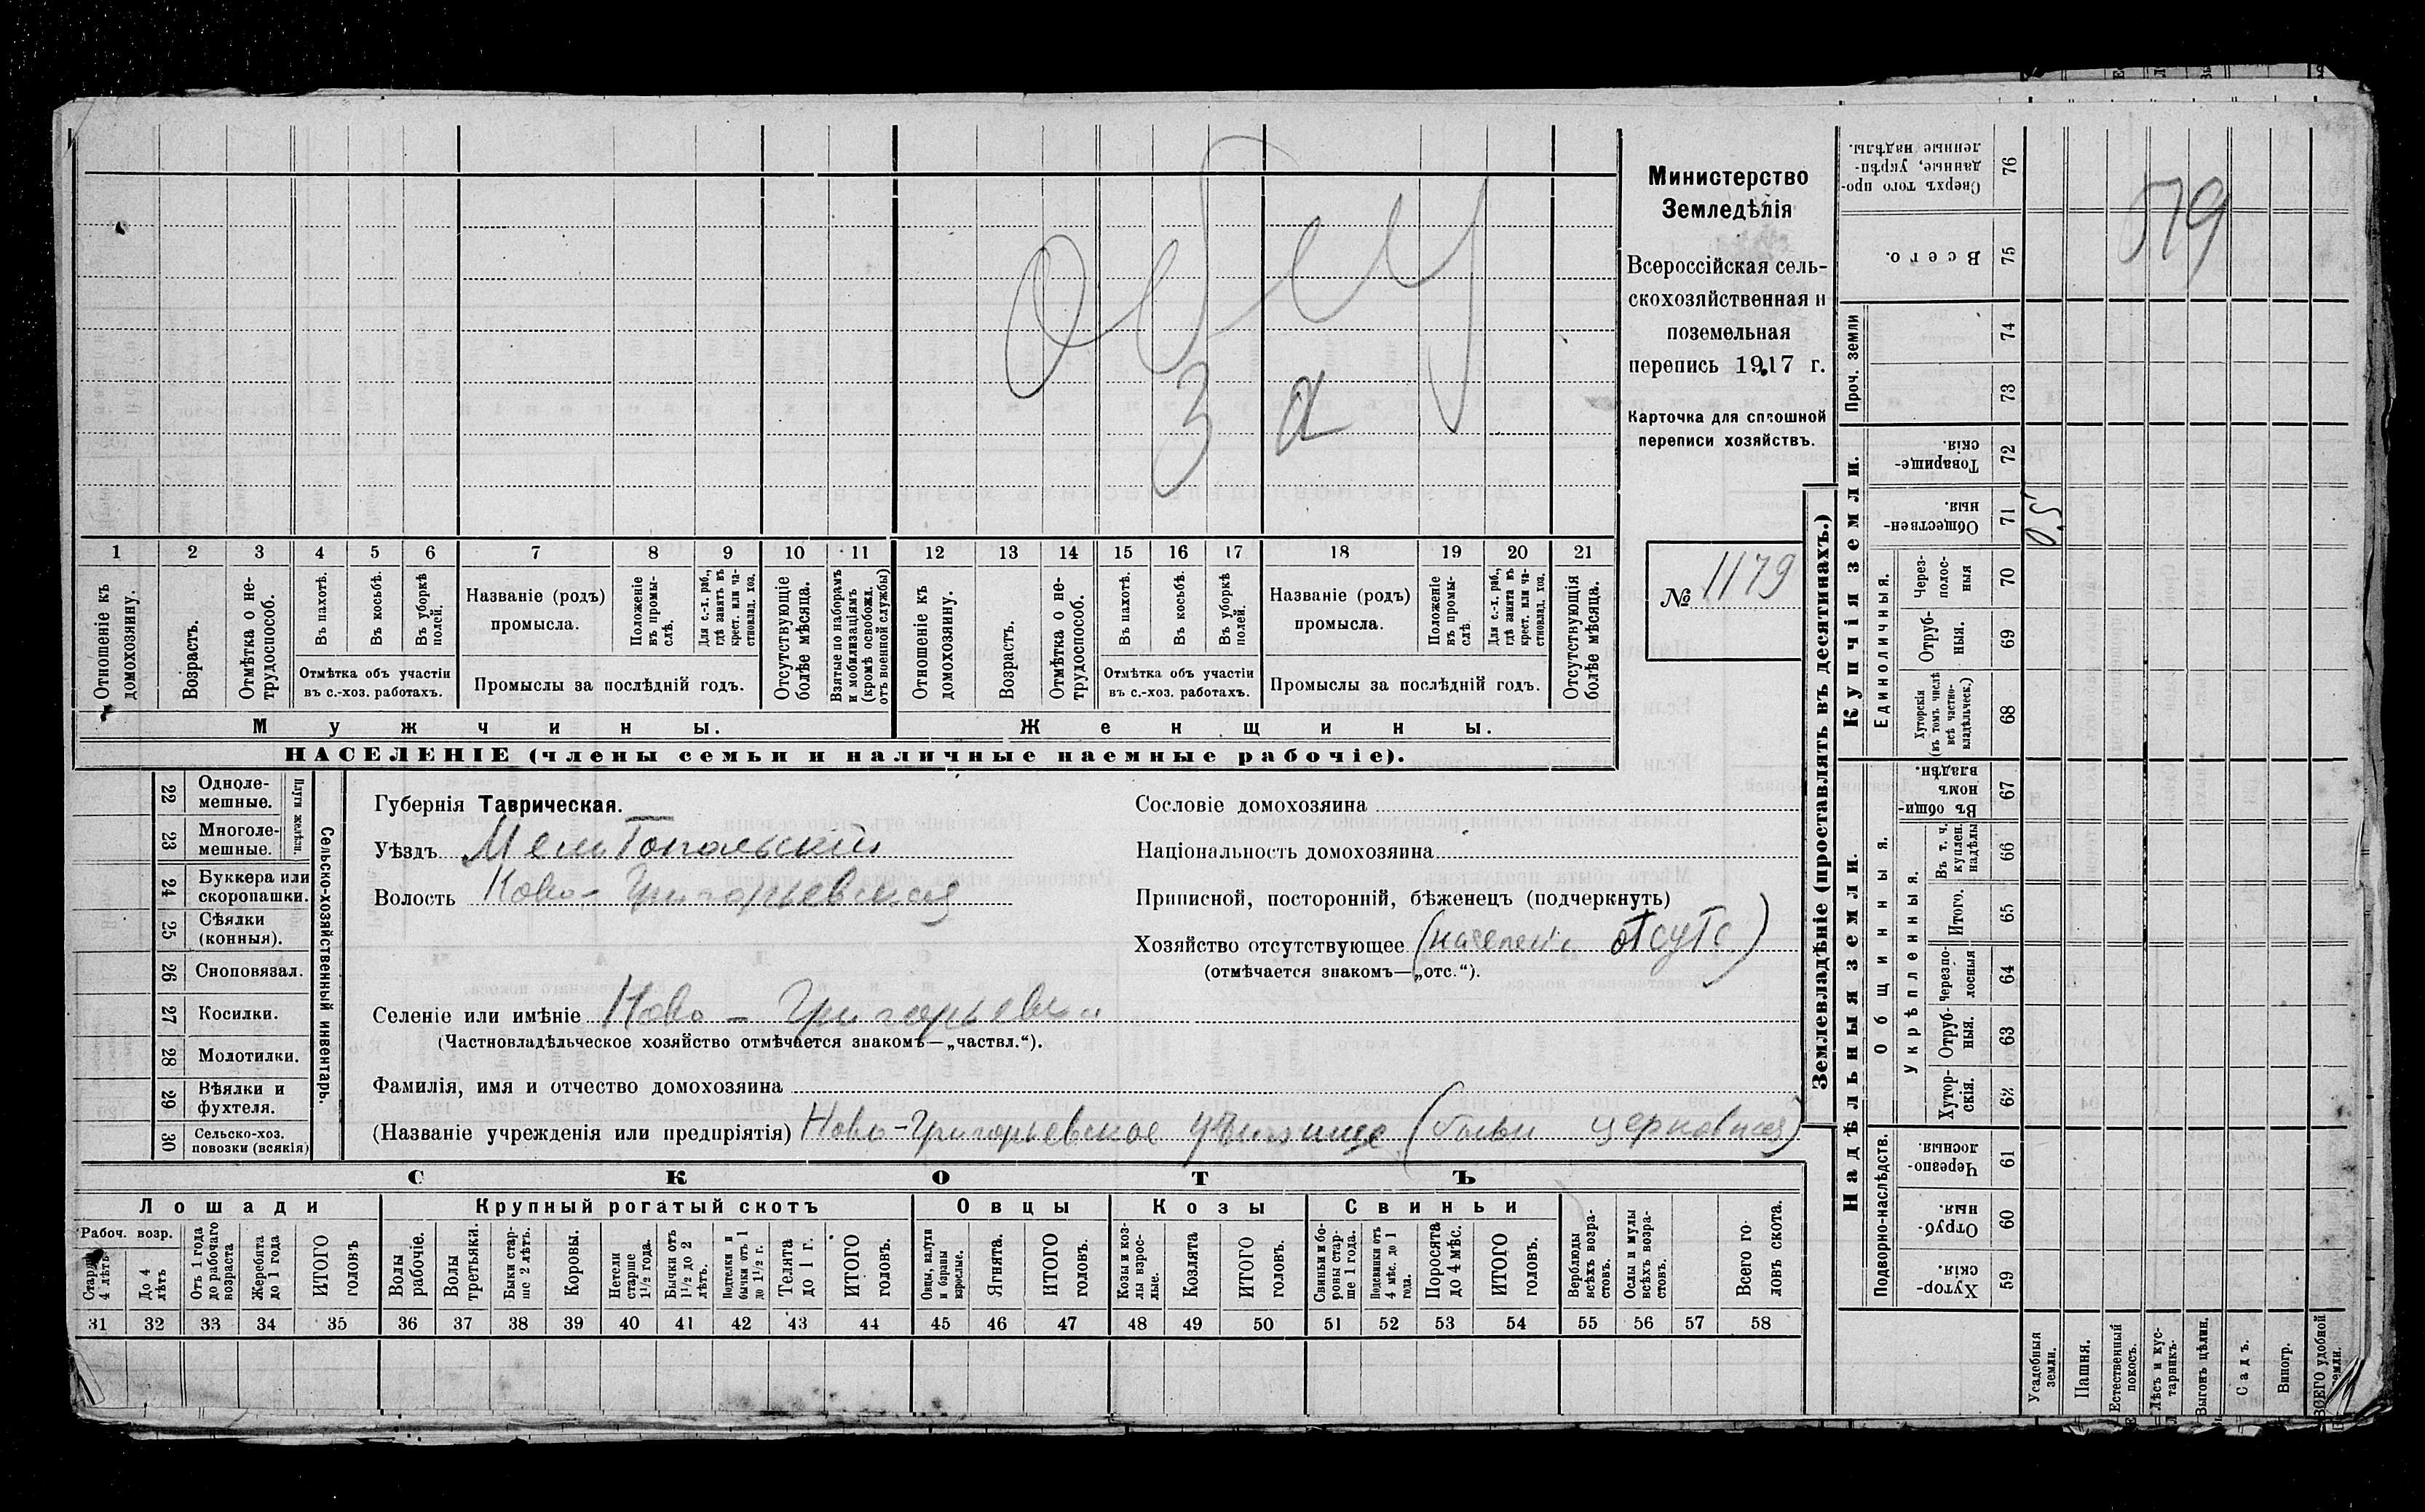 Министерство
Земледѣлія
Всероссійская сель-
скохозяйственная и
поземельная
перепись 1917 г.
Карточка для сплошной
переписи хозяйствъ.
№ 1179
579
3 а
1 2 3 4 5 6 7 8 9 10 11 12 13 14 15 16 17 18 19 20 21
Отношеніе къ домохозяину.
Возрастъ.
Отмѣтка о не-трудоспособ.
Въ пахотѣ.
Въ косьбѣ.
Въ уборкѣ полей.
Отмѣтка объ участіи
въ с.-хоз. работахъ.
Названіе (родъ)
промысла.
Положеніе въ промы-слѣ.
Для с.-х. раб., гдѣ занятъ въ крест. или ча-стновлад. хоз.
Промыслы за послѣдній годъ.
Отсутствующіе болѣе мѣсяца.
Взятые по наборамъ и мобилизаціямъ (кромѣ освобожд. отъ военной службы)
Отношеніе къ домохозяину.
Возрастъ.
Отмѣтка о не-трудоспособ.
Въ пахотѣ.
Въ косьбѣ.
Въ уборкѣ полей.
Отмѣтка объ участіи
въ с.-хоз. работахъ.
Названіе (родъ)
промысла.
Положеніе въ промы-слѣ
Для с.-х. раб., гдѣ занята въ крест. или ча-стновлад. хоз.
Промыслы за послѣдній годъ.
Отсутствующія болѣе мѣсяца.
Мужчины.
Женщины.
НАСЕЛЕНІЕ (члены семьи и наличные наемные рабочіе).
Сельско-хозяйственный инвентарь.
Плуги желѣзн.
22 Одноле-мешные.
23 Многоле-мешные.
24 Буккера или скоропашки.
25 Сѣялки (конныя).
26 Сноповязал.
27 Косилки.
28 Молотилки.
29 Вѣялки и фухтеля.
30 Сельско-хоз. повозки (всякія)
Губернія Таврическая.
Уѣздъ Мелитопольскій
Волость Ново-Григорьевская
Сословіе домохозяина
Національность домохозяина
Приписной, посторонній, бѣженецъ (подчеркнуть)
Хозяйство отсутствующее (населеніе отсутс)
(отмѣчается знакомъ—„отс.“).
Селеніе или имѣніе Ново-Григорьевка
(Частновладѣльческое хозяйство отмѣчается знакомъ—„частвл.“).
Фамилія, имя и отчество домохозяина
(Названіе учрежденія или предпріятія) Ново-Григорьевское училище (бывш церковная)
СКОТЪ
Лошади
Крупный рогатый скотъ
Овцы
Козы
Свиньи
Рабоч. возр.
Старше 4 лѣтъ
До 4 лѣтъ
Отъ 1 года до рабочаго возраста
Жеребята до 1 года
ИТОГО головъ
Волы рабочіе.
Волы третьяки.
Быки стар-ше 2 лѣтъ.
Коровы.
Нетели старше 1½ года.
Бычки отъ 1½ до 2 лѣтъ.
Подтелки и бычки отъ 1 до 1½ г.
Телята до 1 г.
ИТОГО головъ.
Овцы, валухи и бараны взрослые.
Ягнята.
ИТОГО головъ.
Козы и коз-лы взрос-лые.
Козлята
ИТОГО головъ.
Свиньи и бо-ровы стар-ше 1 года.
Подсвинки отъ 4 мѣс. до 1 года.
Поросята до 4 мѣс.
ИТОГО головъ.
Верблюды всѣхъ возра-стовъ.
Ослы и мулы всѣхъ возра-стовъ.
Всего го-ловъ скота.
31 32 33 34 35 36 37 38 39 40 41 42 43 44 45 46 47 48 49 50 51 52 53 54 55 56 57 58
Землевладѣніе (проставлять въ десятинахъ.)
Купчія земли.
Надѣльныя земли.
Проч. земли
Единоличныя.
Общинныя.
Укрѣпленныя.
Подворно-наслѣдств.
Сверхъ того про-данные, укрѣп-ленные надѣлы. 76
Всего. 75
74
73
Товарище-скія. 72
Обществен-ныя. 71 0.5
Через-полос-ныя 70
Отруб-ныя. 69
Хуторскія (въ томъ числѣ всѣ частно-владѣльческ.) 68
Въ общи-номъ владѣн. 67
Въ т. ч. куплен. надѣлы 66
Итого. 65
Черезпо-лосныя 64
Отруб-ныя. 63
Хутор-скія. 62
Черезпо-лосныя. 61
Отруб-ныя. 60
Хутор-скія. 59
Усадебныя земли.
Пашня.
Естественный покосъ.
Лѣсъ и кус-тарникъ.
Выгонъ цѣлин.
Садъ.
Виногр.
ВСЕГО удобной земли.